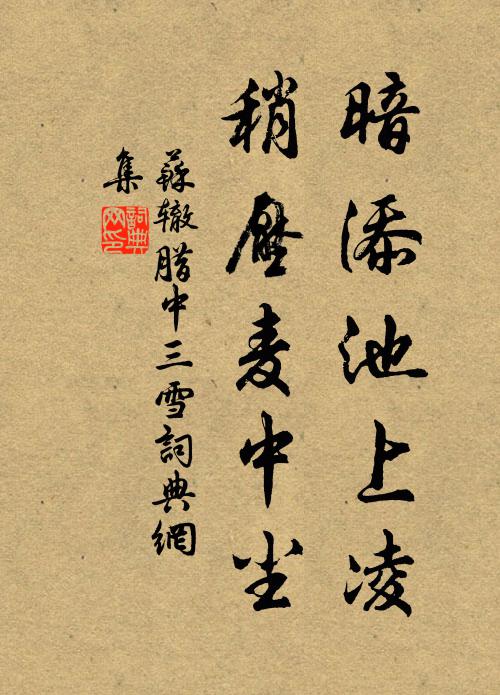 暗添池上凌
稍壓麦中尘
蘇辙腊中三雪詞典網
集
詞典
网印